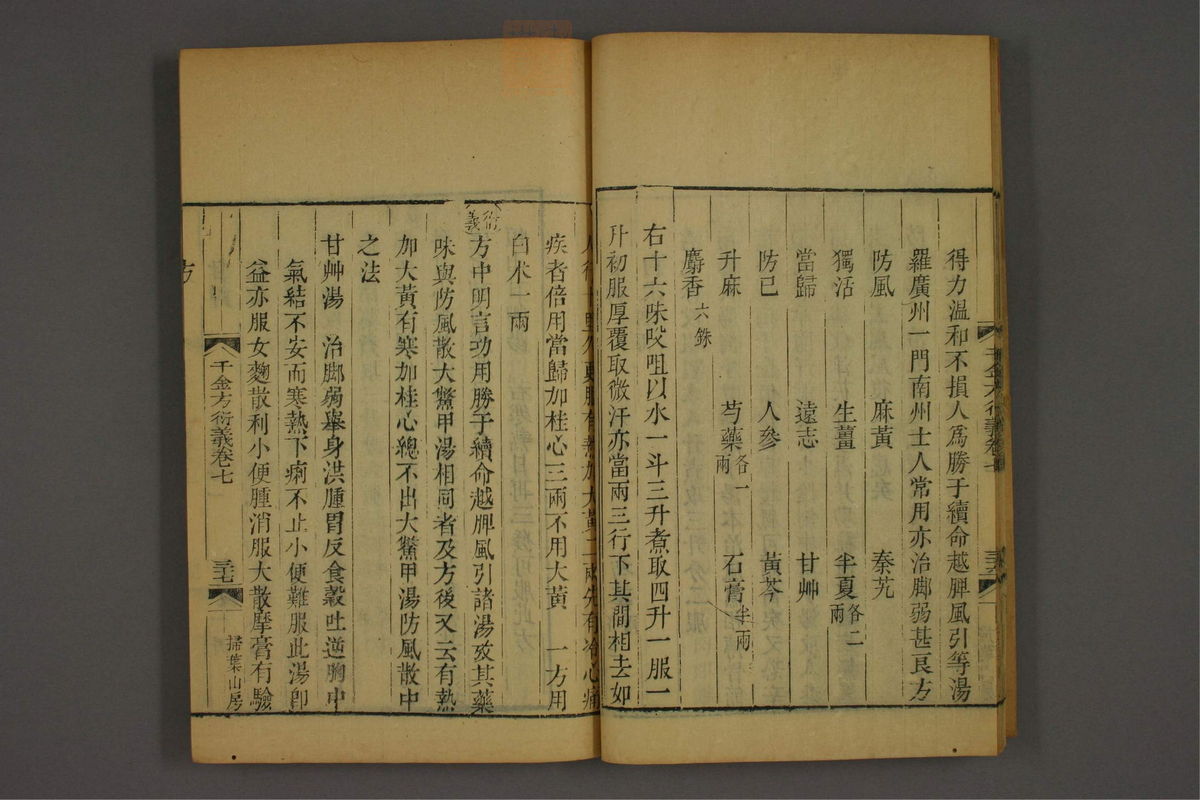 得力溫和不損人爲勝于續命越脾風引等湯
羅廣州一門南州士人常用亦治脚弱甚良方
防風 麻黃 秦艽
獨活 生薑 半夏各二兩
當歸 遠志 甘艸
防已 人參 黃芩
升麻 芍藥各一兩 石膏半兩
麝香六銖
右十六味㕮咀以水一斗三升煮取四升一服一
升初服厚覆取微汗亦當兩三行下其間相去如
人行十里久更服有熱加大黃二兩先有冷心痛
疾者倍用當歸加桂心三兩不用大黃 一方用
白术一兩
衍義
方中明言功用勝于續命越脾風引諸湯攷其藥
味與防風散大鱉甲湯相同者及方後又云有熱
加大黃有寒加桂心總不出大鱉甲湯防風散中
之法
甘艸湯 治脚弱舉身洪腫胃反食穀吐逆胸中
氣結不安而寒熱下痢不止小便難服此湯卽
益亦服女麴散利小便腫消服大散摩膏有驗
方
千金方衍義卷七
三七
掃葉山房